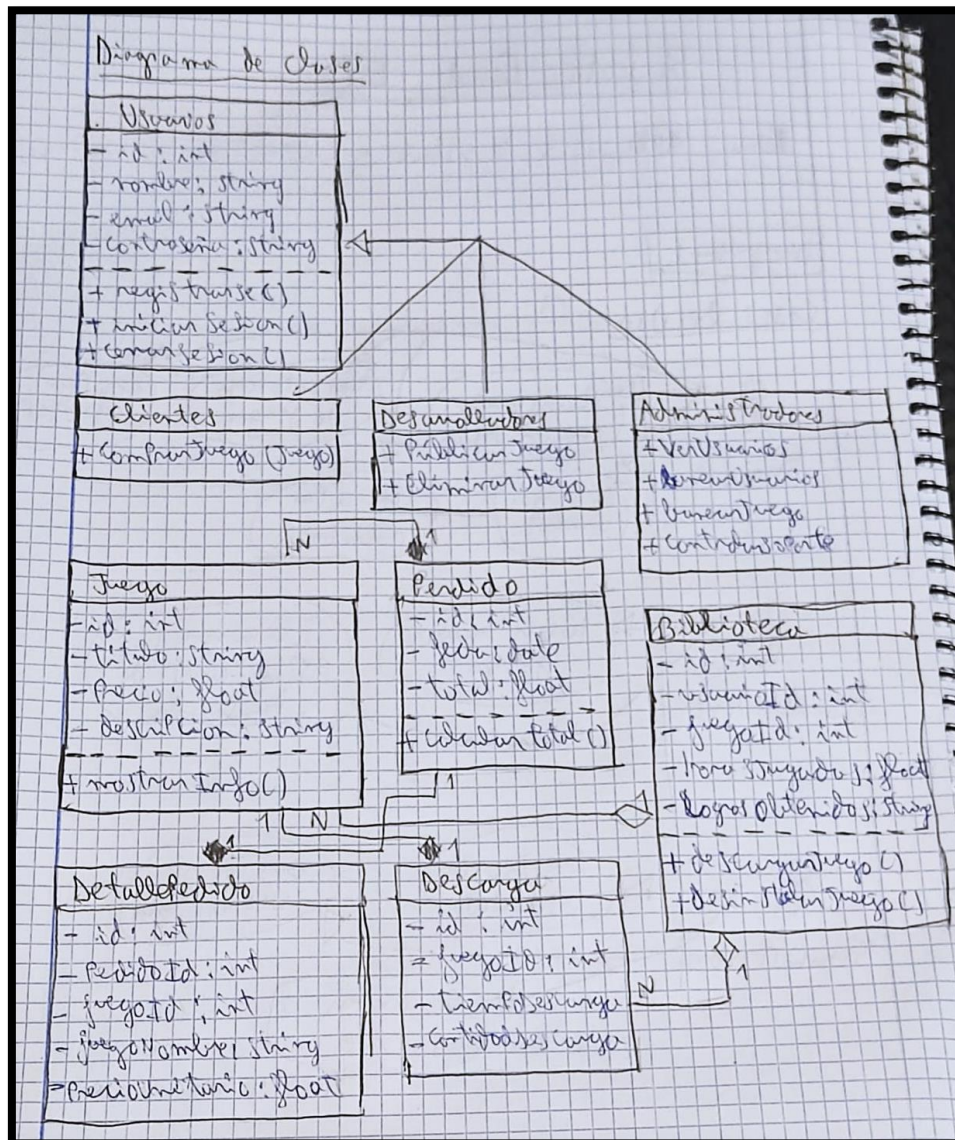 Diagrama de Clases
Usuarios
- id : int
- nombre : string
- email : string
- contraseña : string
+ registrarse()
+ iniciarSesion()
+ cerrarSesion()
Clientes
+ ComprarJuego (Juego)
Desarrolladores
+ PúblicarJuego
+ EliminarJuego
Administradores
+ VerUsuarios
+ banearUsuarios
+ banearJuego
+
N
1
Juego
- id : int
- título : string
- Precio : float
- descripcion : string
+ mostrarInfo()
Perdido
- id : int
- fecha : date
- total : float
+ calcular total()
Biblioteca
- id : int
- usuarioId : int
- juegoId : int
- horasJugadas : float
- LogrosObtenidos : String
+ descargarJuego()
+ desinstalarJuego()
1
1
N
1
1
1
DetallePedido
- id : int
- PedidoId : int
- juegoId : int
- juegoNombre : string
- PrecioUnitario : float
Descarga
- id : int
= juegoID : int
- tiempDescarga
- CantidadDescarga
N
1